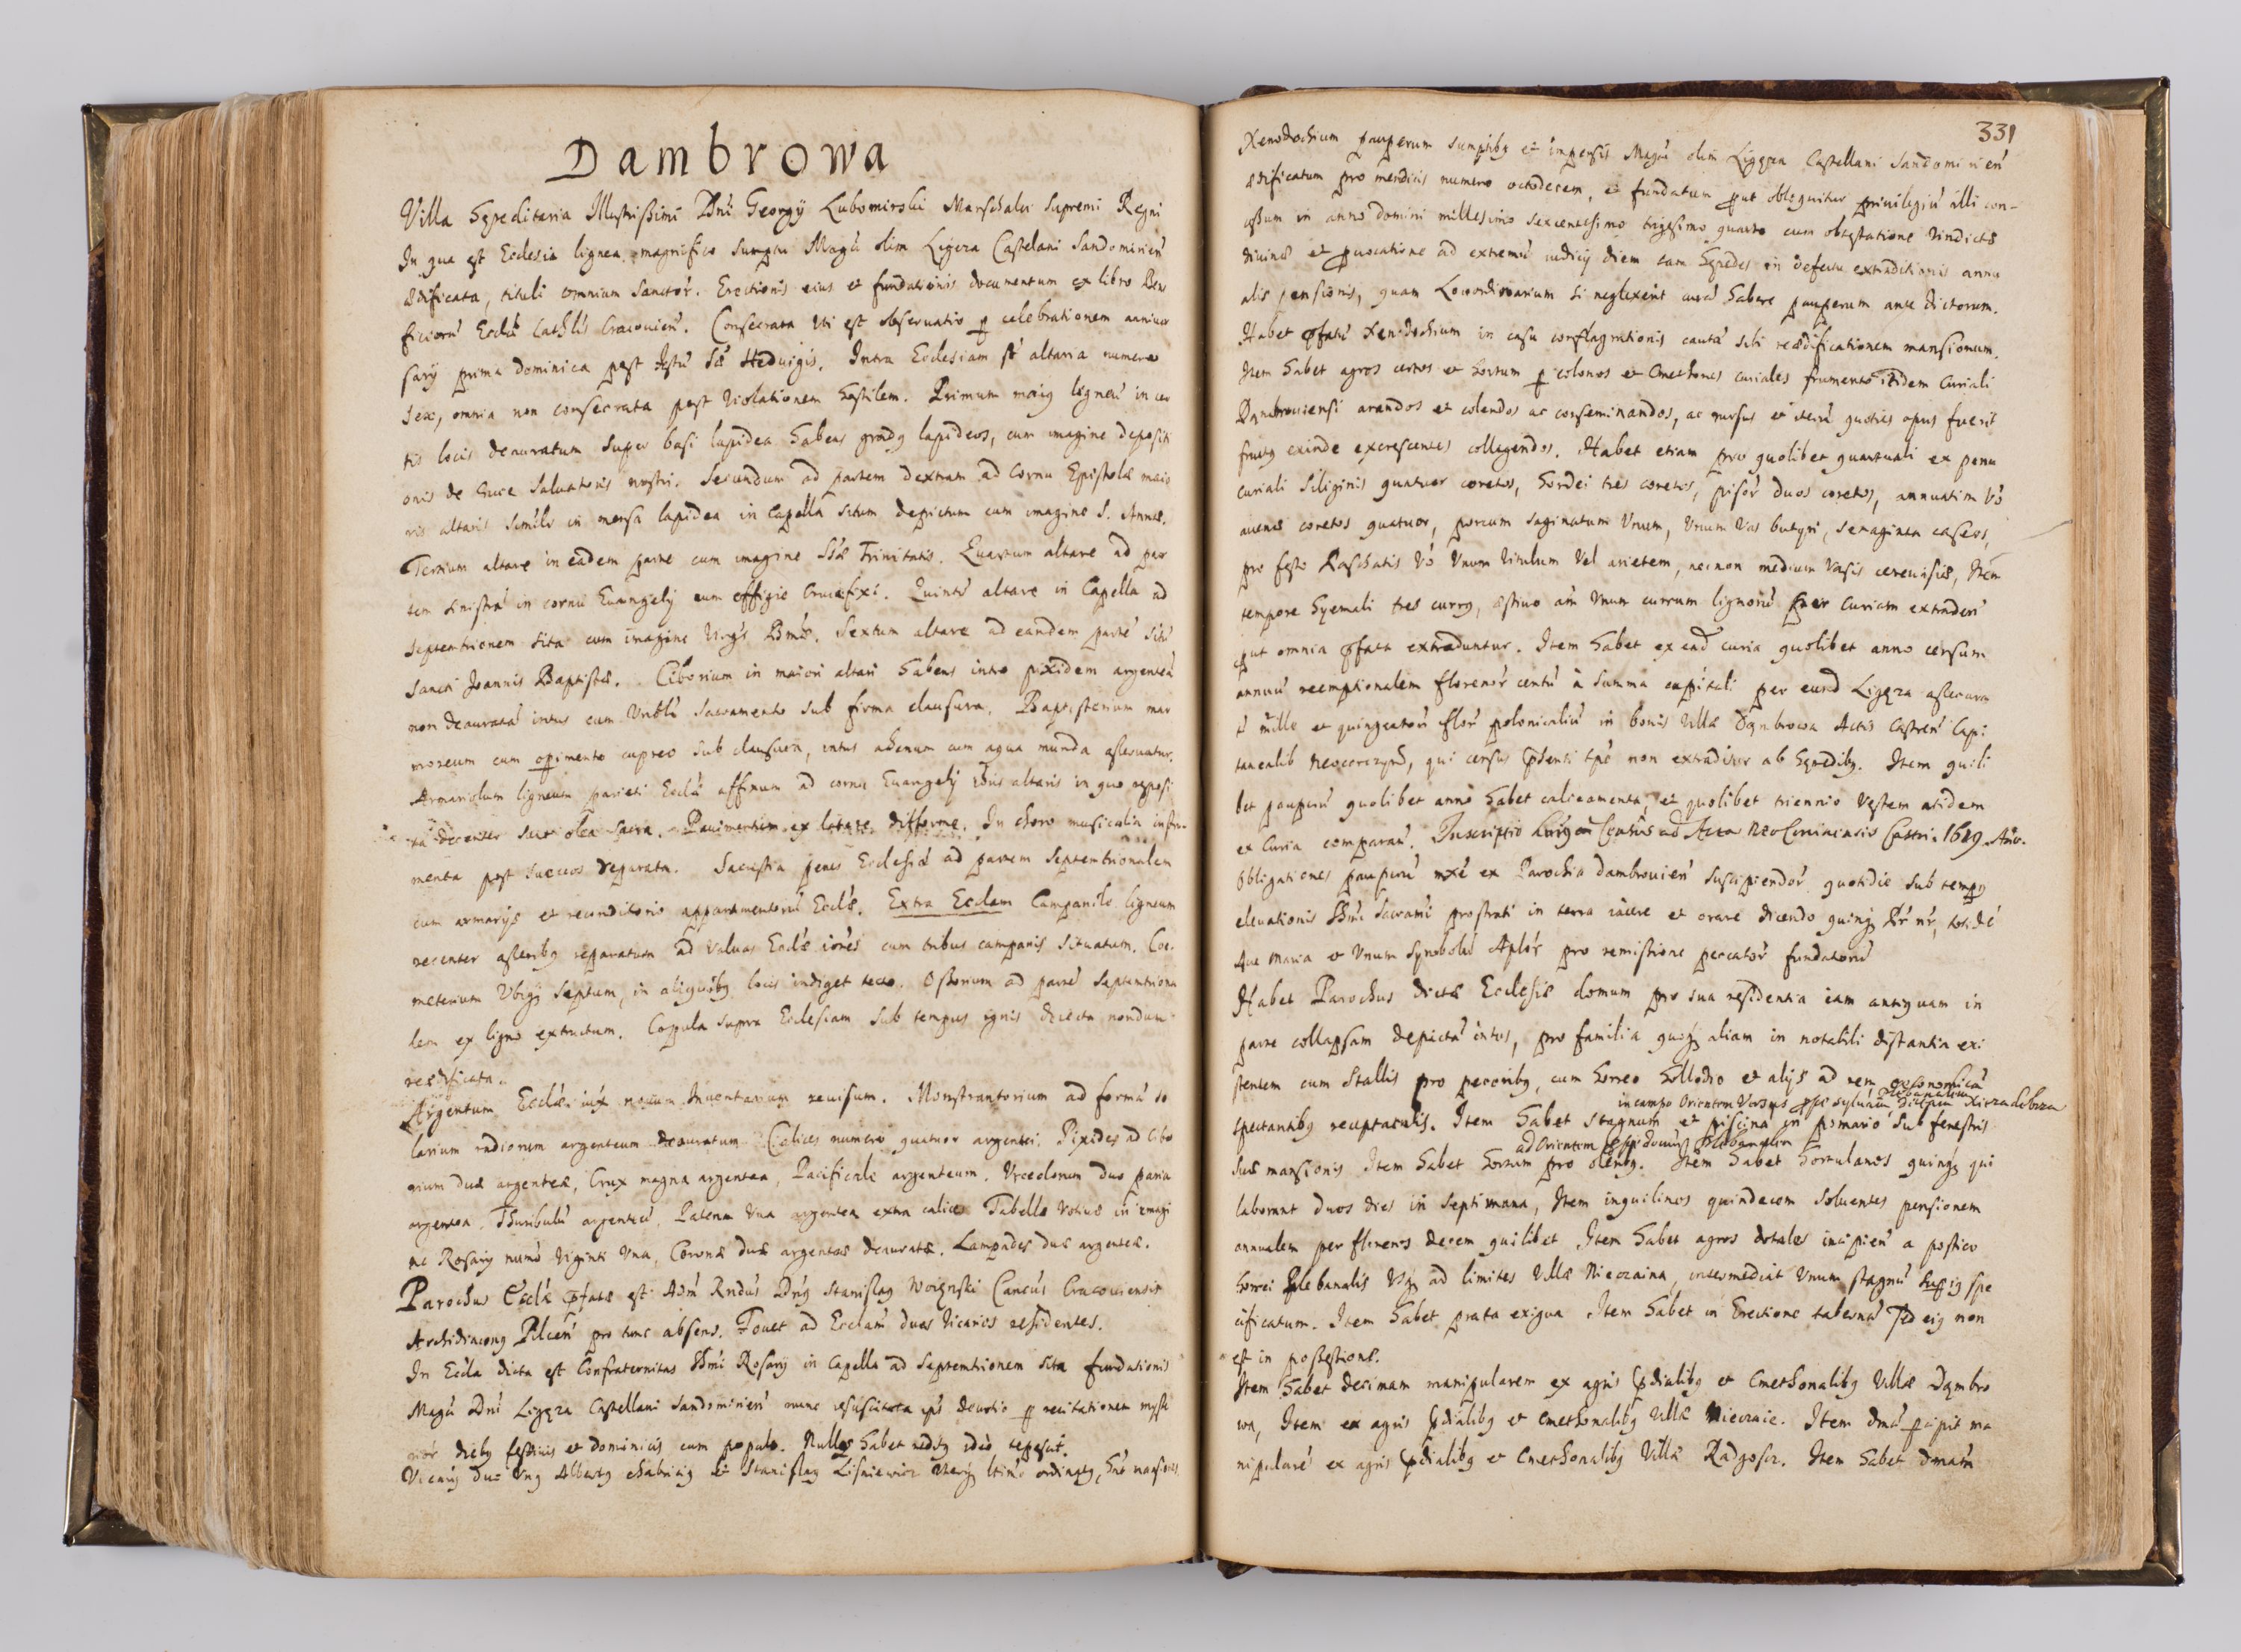 Dambrowa
Villa Hęreditaria Illustrissimi Dni Georgij Lubomirski Marschalci Supremi Regni
In qua est Ecclesia lignea magnifico sumptu Magci olim Ligęza Castelani Sandomirień
ædificata, tituli omnium Sanctor. Erectionis eius et fundationis documentum ex libro Bene
ficiorũ Ecclæ Cathlis Cracovień. Consecrata uti est observatio p celebrationem anniver
sarij prima dominica post festũ Sæ Hedvigis. Intra Ecclesiam st altaria numero
sex, omnia non consecrata post violationem hostilem. Primum maiq ligneũ in cer
tis locis deauratum super basi lapidea habens gradq lapideos, cum imagine depositi
onis de Cruce Salvatoris nostri. Secundum ad partem dextram ad Cornu Epistolæ maio
ris altaris simile in mensa lapidea in Capella situm depictum cum imagine S. Annæ.
Tertium altare in eadem parte cum imagine SSæ Trinitatis. Quartum altare ad par
tem sinistrã in cornu Evangelij cum effigie Crucifixi. Quintũ altare in Capella ad
septentrionem sita cum imagine Virgis Bmæ. Sextum altare ad eandem partẽ sitũ
Sancti Joannis Baptistæ. Ciborium in maiori altari habens intro pixidem argenteã
non deauratã intus cum Vnbli Sacramento sub firma clausura. Baptisterium mar
moreum cum opimento cupreo sub clausura, intus ahenum cum aqua munda asservatur.
Armariolum ligneum parieti Ecclæ affixum ad cornu Evangelij altaris in quo reposi
ta decenter sunt olea sacra. Pavimentum ex latere difforme. In choro musicalia instru
menta post Suecos reparata. Sacrestia penes Ecclesiã ad partem Septentrionalem
cum armarijs et reconditorio appartmentorũ Ecclæ. Extra Ecclam Campanile ligneum
recenter asseribq reparatum ad valvas Ecclæ iores cum tribus campanis situatum. Coe
meterium Vbiq septum, in aliquibq locis indiget tecto. Ossorium ad partẽ Septentriona
lem ex ligno extructum. Coppula supra Ecclesiam sub tempus ignis deiecta nondum
reædificata.
Argentum Ecclæ iux novum Inventarium revisum. Monstrantorium ad formã so
larium radiorum argenteum deauratum Calices numero quatuor argentei. Pixides ad Cibo
rium duæ argenteæ, Crux magna argentea, Pacificale argenteum. Vrceolorum duo paria
argentea. Thuribulũ argenteũ, Patena Vna argentea extra calices Tabellæ votivæ in imagi
ne Rosarij numo viginti Vna, Coronæ duæ argenteæ deauratæ. Lampades duæ argenteæ.
Parochus Ecclæ pfatæ est Adm Rndus Dnq Stanislaq Canćus Cracoviensis
Archidiaconq Pilceń pro tunc absens. Fovet ad Ecclam duos Vicarios residentes.
In Eccla dicta est Confraternitas SSmi Rosarij in Capella ad Septemtrionem sita fundationis
Magci Dni Ligęza Castellani Sandomirień nunc resuscitata eps devotio p recitationem myste
rior diebq festivis et dominicis cum populo. Nullos habet reditq ideo tepescit.
Vicarij duo Vnq Albertq et Stanislaq Lisniewicz Vterq ltime ordinatq, hnt mansiones
331
Xenodochium pauperum sumptibq et impensis Magci olim Ligęza Castellani Sandomirień
ædificatum pro mendicis numero octodecem, et fundatum put obloquitur privilegiũ illi con-
cessum in anno domini millesimo sexcentesimo trigesimo quarto cum obtestatione vindictæ
divinæ et pvocatione ad extremũ iudicij diem tam hęredes in defectu extraditionis annu
alis pensionis, quam Locordinarium si neglexerit curã habere pauperum ante dictorum.
Habet pfatũ Xenodochium in casu conflagrationis cautã sibi reædificationem mansionum.
Item habet agros certos et hortum p colonos et Cmethones curiales frumento itidem Curiali
Dąmbroviensi arandos et colendos ac conseminandos, ac rursus et iterũ quoties opus fuerit
fructq exinde excrescentes colligendos. Habet etiam pro quolibet quartuali ex penu
curiali siliginis quatuor coretos, hordei tres coretos, pisor duos coretos, annuatim vo
avenæ coretos quatuor, porcum saginatum Vnum, Vnum vas butyri, sexaginta caseos,
pro festo Paschatis vo Vnum vitulum vel arietem, necnon medium vasis cerevisiæ, Item
tempore hyemali tres currq, æstivo am Vnum currum lignorũ per Curiam extraderi
put omnia pfata extraduntur. Item habet ex ead curia quolibet anno censum
annuũ reemptionalem florenor centũ à summa capitali per eund Ligęza assecura
tũ mille et quingentorũ flor polonicaliũ in bonis Villæ Dąmbrowa Actis Castreń Capi
tanealib Neocorczyns, qui census psenti tpe non extraditur ab hęredibq. Item quili
bet pauperũ quolibet anno habet calceamenta, et quolibet triennio vestem itidem
ex Curia comparari. Inscriptio huiq Censûs ad Acta Neo Corcinensis Castri. 1649. Año.
Obligationes pauperũ ex Parochia dambrovień suscipiendor quotidie sub tempq
elevationis SSmi Sacramti prostrati in terra iacere et orare dicendo quinq Pr nr, totidẽ
Ave Maria et Vnum Symbolũ Aplor pro remissione peccator fundatoris
Habet Parochus dictæ Ecclesiæ domum pro sua residentia iam antiquam in
parte collapsam depictã intus, pro familia quoq aliam in notabili distantia exi
stentem cum stallis pro pecoribq, cum horreo et alijs ad rem œconomicã
in campo Orientem Versus
spectantibq receptaculis. Item habet stagnum et piscinã in pomario sub fenestris
ad Orientem
suæ mansionis Item habet hortum pro oleribq. Item habet hortulanos quinq qui
laborant duos dies in septimana, Item inquilinos quindecem solventes pensionem
annualem per florenos decem quilibet. Item habet agros dotales incipień a postico
horrei Plebanalis Vsq ad limites Villæ Nieczaina, intermediat Vnum stagnũ supiq spe
cificatum. Item habet prata exigua. Item habet in Erectione tabernã sed eiq non
est in possessione.
Item habet decimam manipularem ex agris pdialibq et Cmethonalibq Villæ Dąmbro
wa, Item ex agris pdialibq et cmethonalibq Villæ Item dmã pcipit ma
nipularẽ ex agris pdialibq et Cmethonalibq Villæ Radgoscz. Item habet dmam